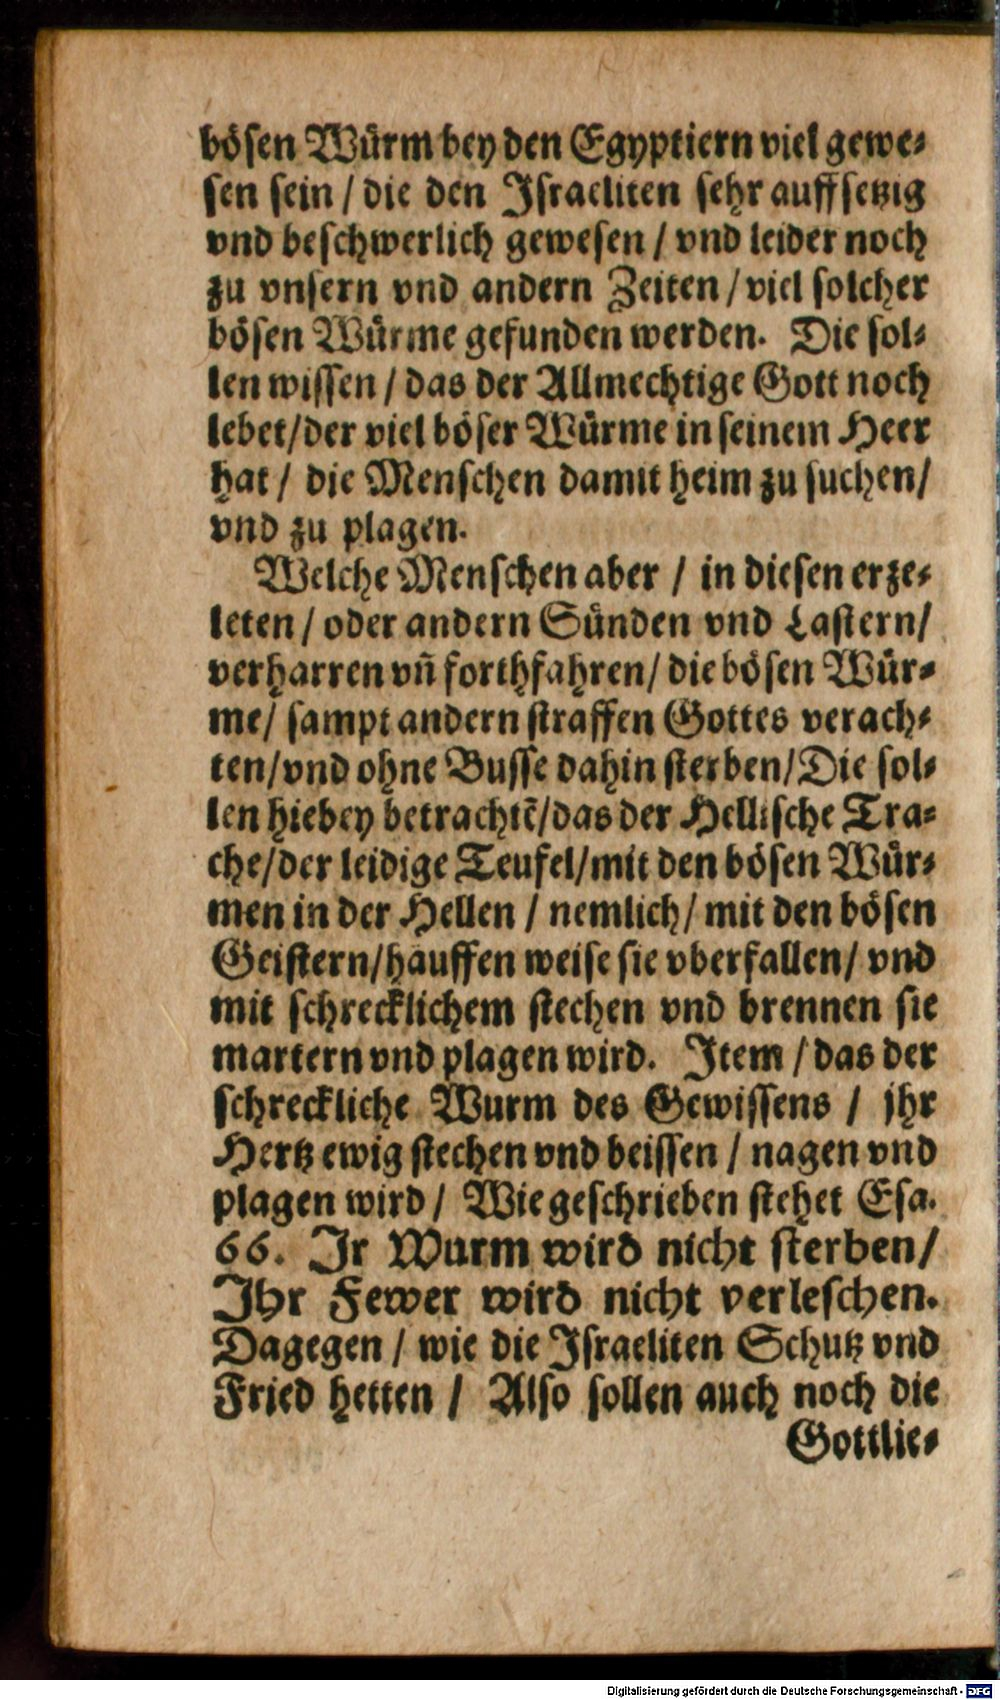 bösen Würm bey den Egyptiern viel gewe⸗
sen sein / die den Israeliten sehr auffsetzig
vnd beschwerlich gewesen / vnd leider noch
zu vnsern vnd andern Zeiten / viel solcher
bösen Würme gefunden werden. Die sol⸗
len wissen / das der Allmechtige Gott noch
lebet/der viel böser Würme in seinem Heer
hat / die Menschen damit heim zu suchen/
vnd zu plagen.
Welche Menschen aber / in diesen erze⸗
leten / oder andern Sünden vnd Lastern/
verharren vn̄ forthfahren/ die bösen Wür⸗
me/ sampt andern straffen Gottes verach⸗
ten/vnd ohne Busse dahin sterben/Die sol⸗
len hiebey betrachtē/das der Hellische Tra⸗
che/der leidige Teufel/mit den bösen Wür⸗
men in der Hellen / nemlich/ mit den bösen
Geistern/hauffen weise sie vberfallen/ vnd
mit schrecklichem stechen vnd brennen sie
martern vnd plagen wird. Item / das der
schreckliche Wurm des Gewissens / jhr
Hertz ewig stechen vnd beissen / nagen vnd
plagen wird / Wie geschrieben stehet Esa.
66. Ir Wurm wird nicht sterben/
Ihr Fewer wird nicht verleschen.
Dagegen / wie die Israeliten Schutz vnd
Fried hetten / Also sollen auch noch die
Gottlie⸗
Digitalisierung gefördert durch die Deutsche Forschungsgemeinschaft - DFG